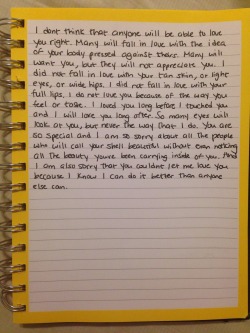 I dont think that anyone will be able to love
you right. Many will fall in love with the idea
of your body pressed against theirs. Many will
want you, but they will not appreciate you. I
did not fall in love with your tan skin, or light
eyes, or wide hips. I did not fall in love with your
full lips, I do not love you because of the way you
feel or taste. I loved you long before I touched you
and I will love you long after. So many eyes will
look at you, but never the way that I do. You are
so special and I am so sorry about all the people
who will call your shell beautiful without even noticing
all the beauty youve been carrying inside of you. And
I am also sorry that you couldnt let me love you
because I know I can do it better than anyone
else can.